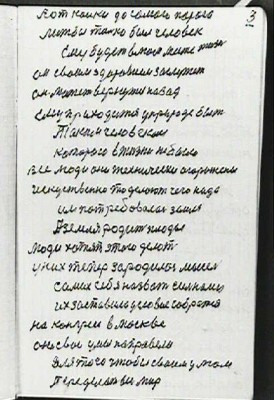 3
Вот каики до самого порого
Лишбы толко был человек
Ему будет в моем мите жизн
он своим здоровием заслужит
он может вернутся назад
Ему приходится у природе быт
Таким человеком
которого в жизни небыло
Все люди они технически вооружены
искуственно то делают чего надо
им потребовалас земля
А земля родит плоды
люди хотят этого делат
у них тепер зародилас мысл
самих себя назват силными
их заставило условие собратся
на конгрес в Москве
они свои умы направели
Для того чтобы своим умом
Переделат вес мир